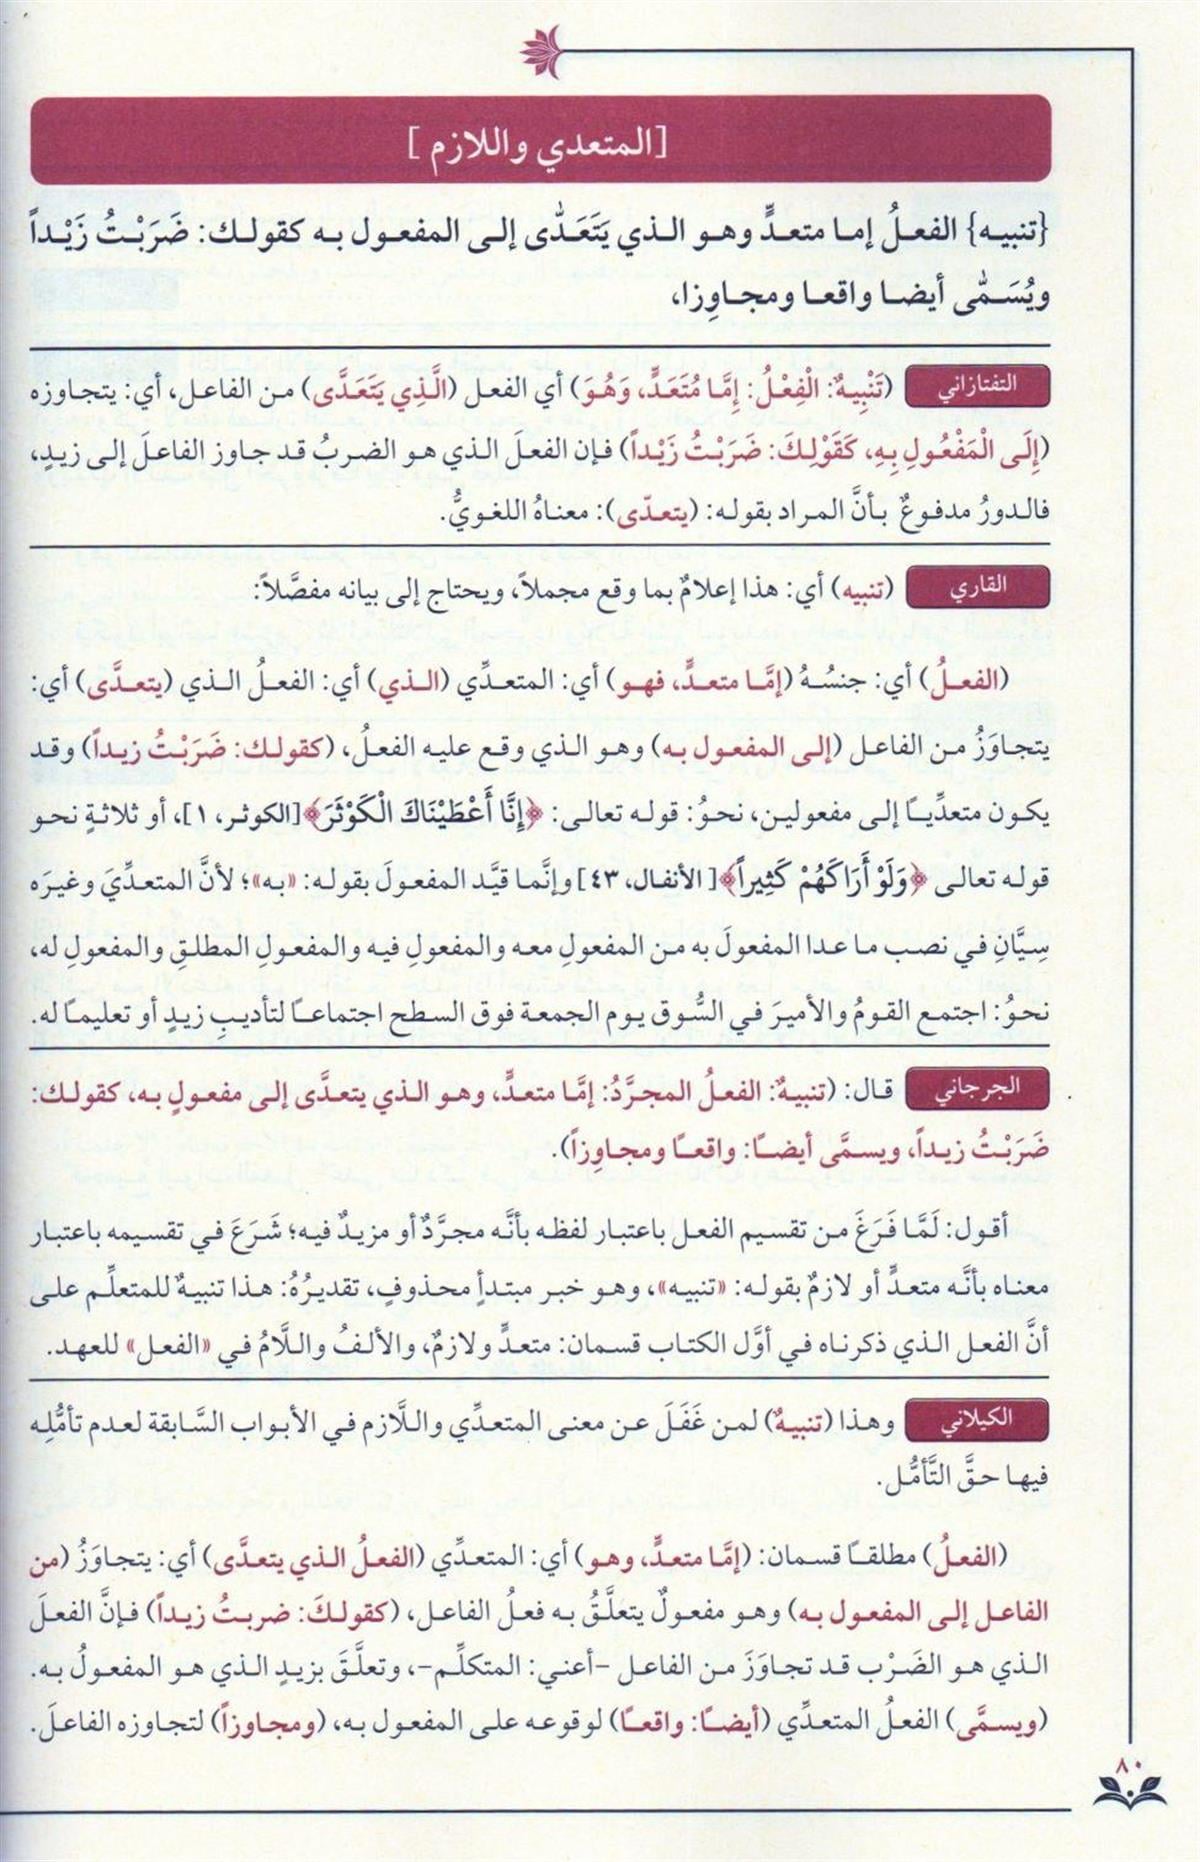 [المتعدي واللازم ]
{تنبيه} الفعلُ إما متعدٍّ وهو الذي يَتَعَدّٰى إلى المفعول به كقولك: ضَرَبْتُ زَيْداً
ويُسَمّٰى أيضا واقعا ومجاوِزا،
التفتازاني (تَنْبِيهٌ: الْفِعْلُ: إِمَّا مُتَعَدٍّ، وَهُوَ) أي الفعل (الَّذِي يَتَعَدَّى) من الفاعل، أي: يتجاوزه
(إِلَى الْمَفْعُولِ بِهِ، كَقَوْلِكَ: ضَرَبْتُ زَيْداً) فإن الفعلَ الذي هو الضربُ قد جاوز الفاعلَ إلى زيدٍ،
فالدورُ مدفوعٌ بأنَّ المراد بقوله: (يتعدّى): معناهُ اللغويُّ.
القاري (تنبيه) أي: هذا إعلامٌ بما وقع مجملاً، ويحتاج إلى بيانه مفصَّلاً:
(الفعلُ) أي: جنسُهُ (إمَّا متعدٍّ، فهو) أي: المتعدِّي (الذي) أي: الفعلُ الذي (يتعدَّى) أي:
يتجاوَزُ من الفاعل (إلى المفعول به) وهو الذي وقع عليه الفعلُ، (كقولك: ضَرَبْتُ زيداً) وقد
يكون متعدِّيـًا إلى مفعولين، نحوُ: قوله تعالى: ﴿إِنَّا أَعْطَيْنَاكَ الْكَوْثَرَ﴾[الكوثر، ١]، أو ثلاثةٍ نحو
قوله تعالى ﴿وَلَوْ أَرَاكَهُمْ كَثِيراً﴾[ الأنفال، ٤٣] وإنَّما قيَّد المفعولَ بقوله: «به»؛ لأنَّ المتعدِّيَ وغيرَه
سِيَّانِ في نصب ما عدا المفعولَ به من المفعولِ معه والمفعولِ فيه والمفعولِ المطلقِ والمفعولِ له،
نحوُ: اجتمع القومُ والأميرَ في السُّوق يوم الجمعة فوق السطح اجتماعـًا لتأديبِ زيدٍ أو تعليمـًا له.
الجرجاني قال: (تنبيهٌ: الفعلُ المجرَّدُ: إمَّا متعدٍّ، وهو الذي يتعدَّى إلى مفعولٍ به، كقولك:
ضَرَبْتُ زيداً، ويسمَّى أيضـًا: واقعـًا ومجاوِزاً).
أقول: لَمَّا فَرَغَ من تقسيم الفعل باعتبار لفظه بأنَّه مجرَّدٌ أو مزيدٌ فيه؛ شَرَعَ في تقسيمه باعتبار
معناه بأنَّه متعدٍّ أو لازمٌ بقوله: «تنبيه»، وهو خبر مبتدأٍ محذوفٍ، تقديرُهُ: هذا تنبيهٌ للمتعلِّم على
أنَّ الفعل الذي ذكرناه في أوَّل الكتاب قسمان: متعدٍّ ولازمٌ، والألفُ واللَّامُ في «الفعل» للعهد.
الكيلاني وهذا (تنبيهٌ) لمن غَفَلَ عن معنى المتعدِّي واللَّازم في الأبواب السَّابقة لعدم تأمُّلِه
فيها حقَّ التَّأمُّل.
(الفعلُ) مطلقـًا قسمان: (إمَّا متعدٍّ، وهو) أي: المتعدِّي (الفعلُ الذي يتعدَّى) أي: يتجاوَزُ (من
الفاعل إلى المفعول به) وهو مفعولٌ يتعلَّقُ به فعلُ الفاعل، (كقولكَ: ضربتُ زيداً) فإنَّ الفعلَ
الذي هو الضَرْب قد تجاوَزَ من الفاعل -أعني: المتكلِّم-، وتعلَّقَ بزيدٍ الذي هو المفعولُ به.
(ويسمَّى) الفعلُ المتعدِّي (أيضـًا: واقعـًا) لوقوعه على المفعول به، (ومجاوزاً) لتجاوزه الفاعلَ.
٨٠